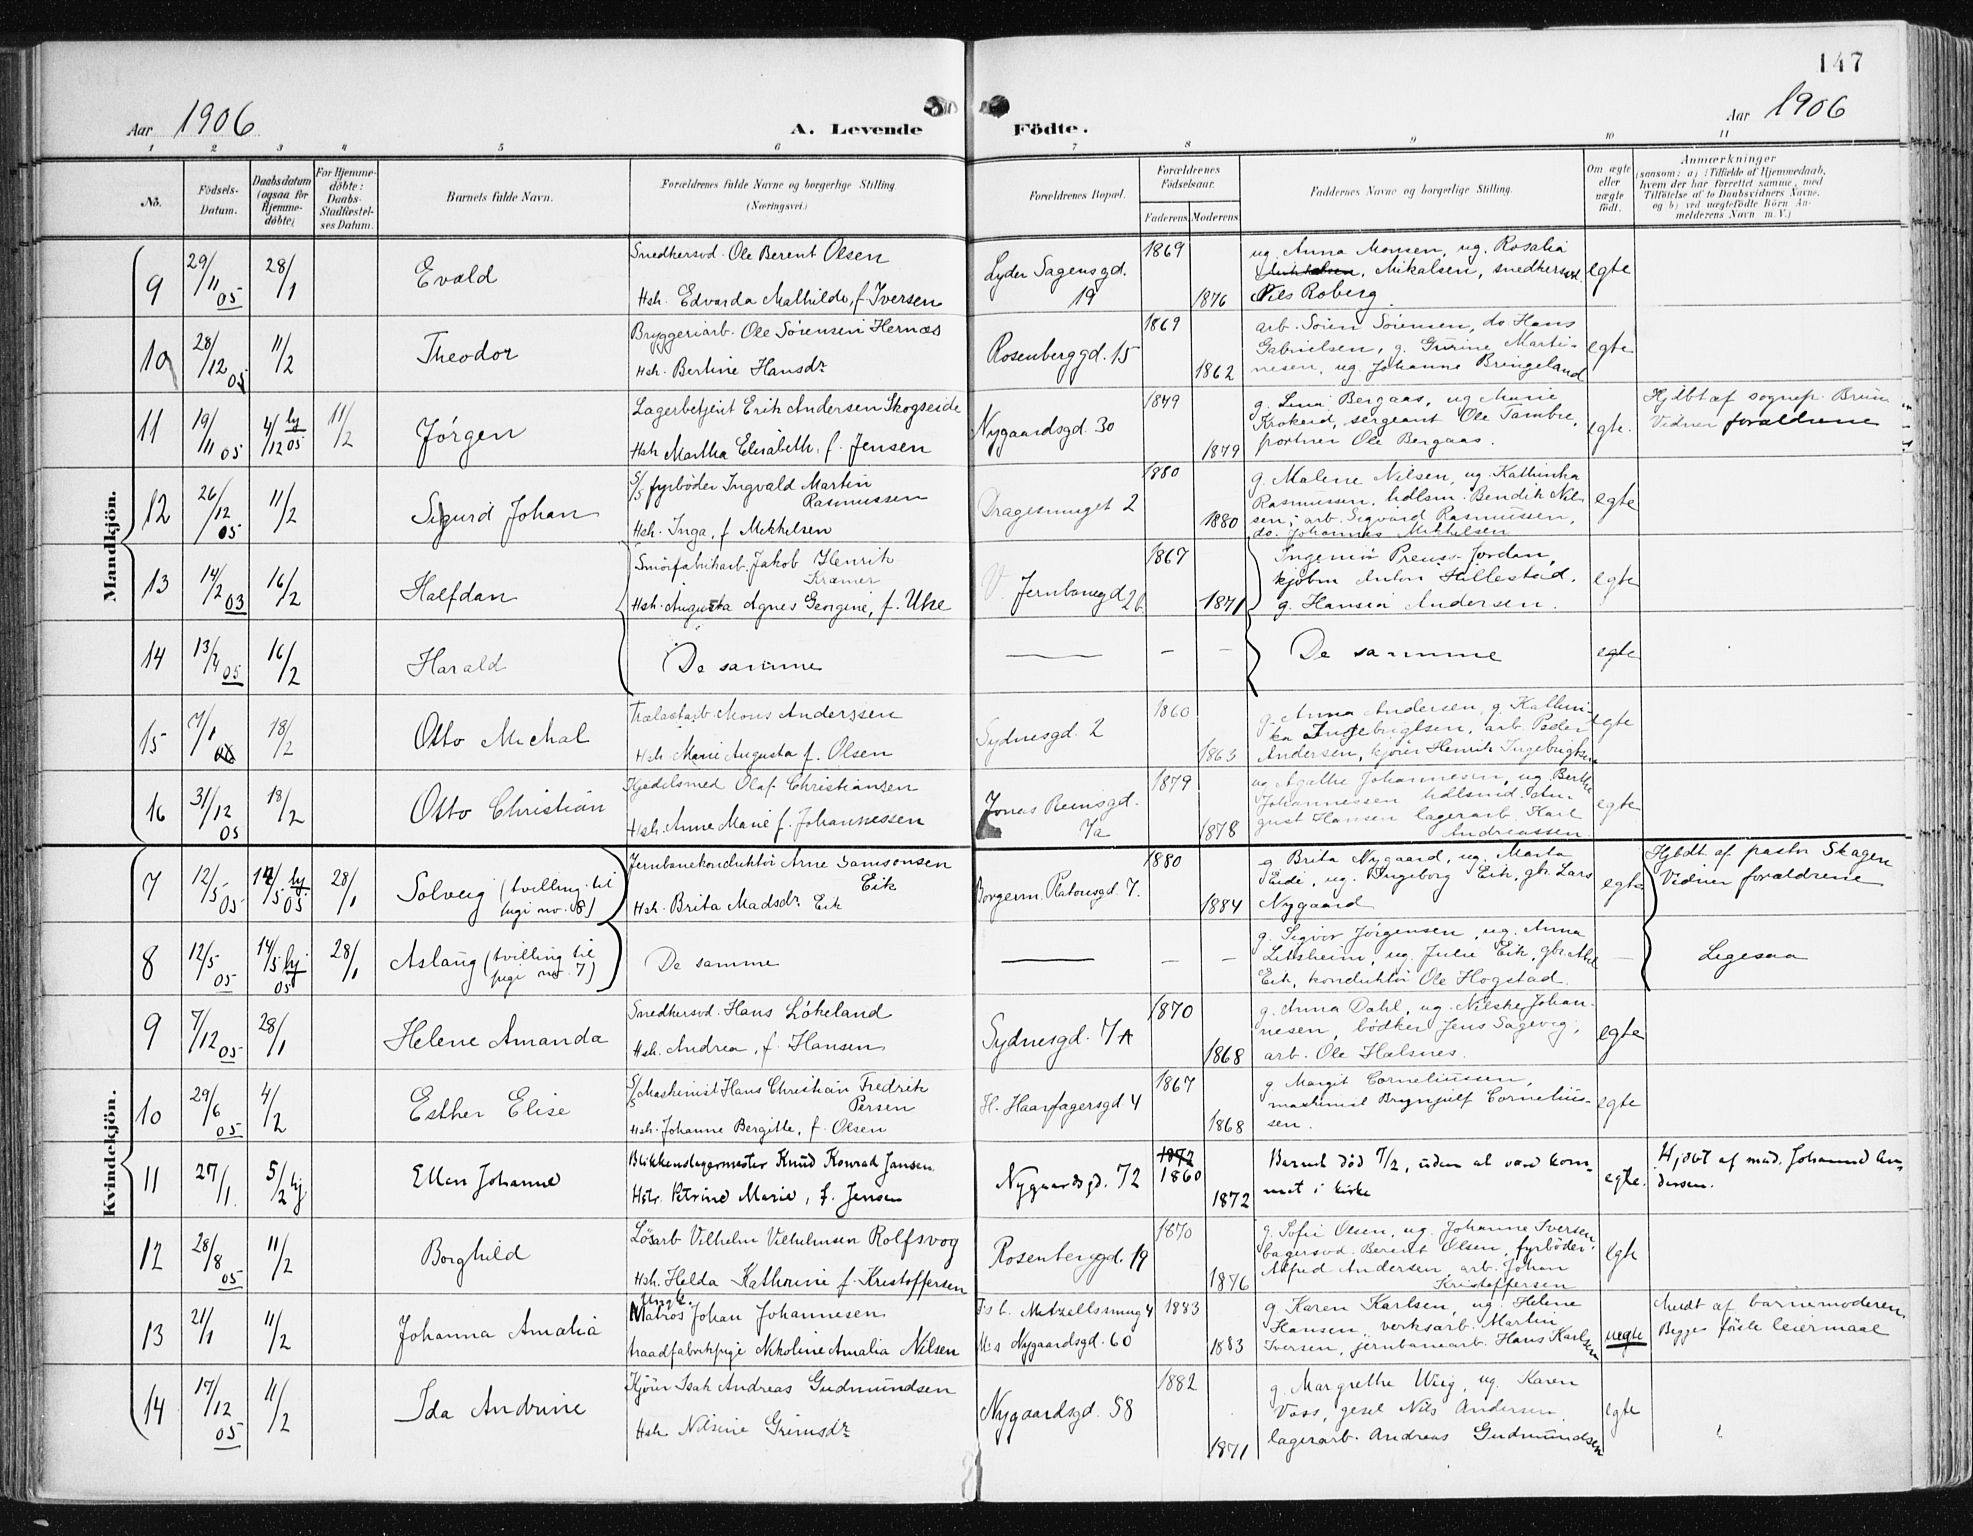 147
Aar 1906
A. Levende Födte.
Aar 1906
1 2 3 4 5 6 7 8 9 10 11
No.
Födsels-
Datum.
Daabsdatum
(ogsaa for
Hjemme-
döbte)
For Hjemme-
döbte:
Daabs-
Stadfæstel-
ses Datum.
Barnets fulde Navn.
Forældrenes fulde Navne og borgerlige Stilling
(Næringsvei.)
Forældrenes Bopæl.
Forældrenes
Födselsaar.
Faderens
Moderens
Faddernes Navne og borgerlige Stilling.
Om ægte
eller
uægte
födt.
Anmærkninger
(saasom: a) i Tilfælde af Hjemmedaab,
hvem der har forrettet samme, med
Tilföielse af to Daabsvidners Navne.
og b) ved uægtefödte Börn An-
melderens Navn m. V.)
Mandkjön.
9 29/11 05 28/1 Evald
Snedkersvd. Ole Berent Olsen
Hst. Edvarda Mathilde, f. Iversen
Lyder Sagensgd.
19
1869
1876
ug. Anna Monsen, ug. Rosalia
Mikalsen, snedkersvd.
Nils Roberg.
egte
10 28/12 05 11/2 Theodor
Bryggeriarb. Ole Sörensen Hernæs
Hst. Bertine Hansdr
Rosenberggd. 15
1869
1862
arb. Sören Sörensen, do. Hans
Gabrielsen, g. Gurine Marti-
nesen, ug. Johanne Bringeland
egte
11 19/11 05 4/12 05 hj 11/2 Jörgen
Lagerbetjent Erik Andersen Skogseide
Hst. Martha Elisabeth, f. Jensen
Nygaardsgd. 30
1849
1879
g. Lina Bergaas, ug. Marie
Krokeid, sergeant Ole Tambre,
portner Ole Bergaas.
egte.
Hjdbt af sognep. Bruun
Vidner forældrene
12 26/12 05 11/2 Sigurd Johan
S/S fyrböder Ingvald Martin
Rasmussen
Hst. Inga, f. Mikkelsen
Dragesmuget 2
1880
1880
g. Malene Nilsen, ug. Kathinka
Rasmussen, hdlsm. Bendik Nil-
sen, arb. Sigvard Rasmussen,
do. Johannes Mikkelsen
egte
13 14/2 03 16/2 Halfdan
Smörfabrikarb. Jakob Henrik
Kramer
Hst. Augusta Agnes Georgine, f. Uhe
V. Jernbanegd 26
1867
1871
Ingeniör Preuss Jordan,
kjöbm Anton Hillestad,
g. Hansia Andersen.
egte
14 13/4 05 16/2 Harald
De samme
— — —
De samme
egte
15 7/1 18/2 Otto Michal
Trælastarb Mons Anderssen
Hst. Marie Augusta f. Olsen
Sydnesgd. 2
1860
1863
g. Anna Andersen, g. Kathin-
ka Ingebrigtsen, arb. Peder
Andersen, kjörer Henrik Ingebrigtsen
egte
16 31/12 05 18/2 Otto Christian
Kjedelsmed Olaf Christiansen
Hst. Anne Marie f. Johannessen
Jonas Reinsgd.
7a
1879
1878
ug. Agathe Johannesen, ug. Berthe
Johannessen hdlsmd. Au-
gust Hansen lagerarb. Karl
Andreassen
egte
Kvindekjön.
7 12/5 05 14/5 05 hj 28/1 Solveig (tvilling til
pige no. 8)
Jernbanekonduktör Arne Samsonsen
Eik
Hst. Brita Madsdr Eik
Borgerm. Platousgd. 7.
1880
1884
g. Brita Nygaard, ug. Marta
Eide, ug. Ingeborg Eik, gbr. Lars
Nygaard
egte
Hjdbt. af pastor Skagen
Vidner forældrene
8 12/5 05 14/5 hj 05 28/1 Aslaug (tvilling til
pige no. 7)
De samme
— — —
g. Sigvor Jörgensen, ug. Anna
Litlsheim, ug. Julie Eik, gbr.
Eik, konduktör Ole Hogstad.
—
Ligesaa
9 7/12 05 28/1 Helene Amanda
Snedkersvd. Hans Lökeland
Hst. Andrea, f. Hansen
Sydnesgd. 7A
1870
1868
g. Anna Dahl, ug. Nilske Johan-
nesen, bödker Jens Sagevig,
arb. Ole Halsnes.
egte
10 29/6 05 4/2 Esther Elise
S/S Maskinist Hans Christian Fredrik
Persen
Hst. Johanne Bergitte, f. Olsen
H. Haarfagersgd 4
1867
1868
g. Margit Corneliussen,
maskinist Brynjulf Cornelius-
sen.
egte
11 27/1 5/2 hj Ellen Johanne
Blikkenslagermester Knud Konrad Jansen
Hstr. Petrine Marie, f. Jensen
Nygaardsgd. 72
1872
1860
1872
Barnet död 7/2, uden at være kom-
met i kirke
egte.
Hjdbt af mad. Johanne An-
dersen.
12 28/8 05 11/2 Borghild
Lösarb Vilhelm Vilhelmsen Rolfsvog
Hst. Helda Kathrine f. Kristoffersen
Rosenberggd. 19
1870
1876
g. Sofie Olsen, ug. Johanne Iversen,
bagersvd. Berent Olsen, fyrböder
Alfred Andersen, arb. Johan
Kristoffersen
egte
13 21/1 11/2 Johanna Amalia
Ungk.
Matros Johan Johannesen
traadfabrikpige Nikoline Amalia Nilsen
F: s b. Metzellsmug 4
M: s Nygaardsgd. 60
1883
1883
g. Karen Karlsen, ug. Helene
Hansen, verksarb. Martin
Iversen, jernbanearb. Hans Karlsen
uegte
Anmdt af barnemoderen
Begges förste leiermaal
14 17/12 05 11/2 Ida Andrine
Kjörer Isak Andreas Gudmundsen
Hst. Nilsine Grimsdr
Nygaardsgd. 58
1882
1871
g. Margrethe Wiig, ug. Karen
Voss, gesel Nils Andersen,
lagerarb. Andreas Gudmundsen
egte